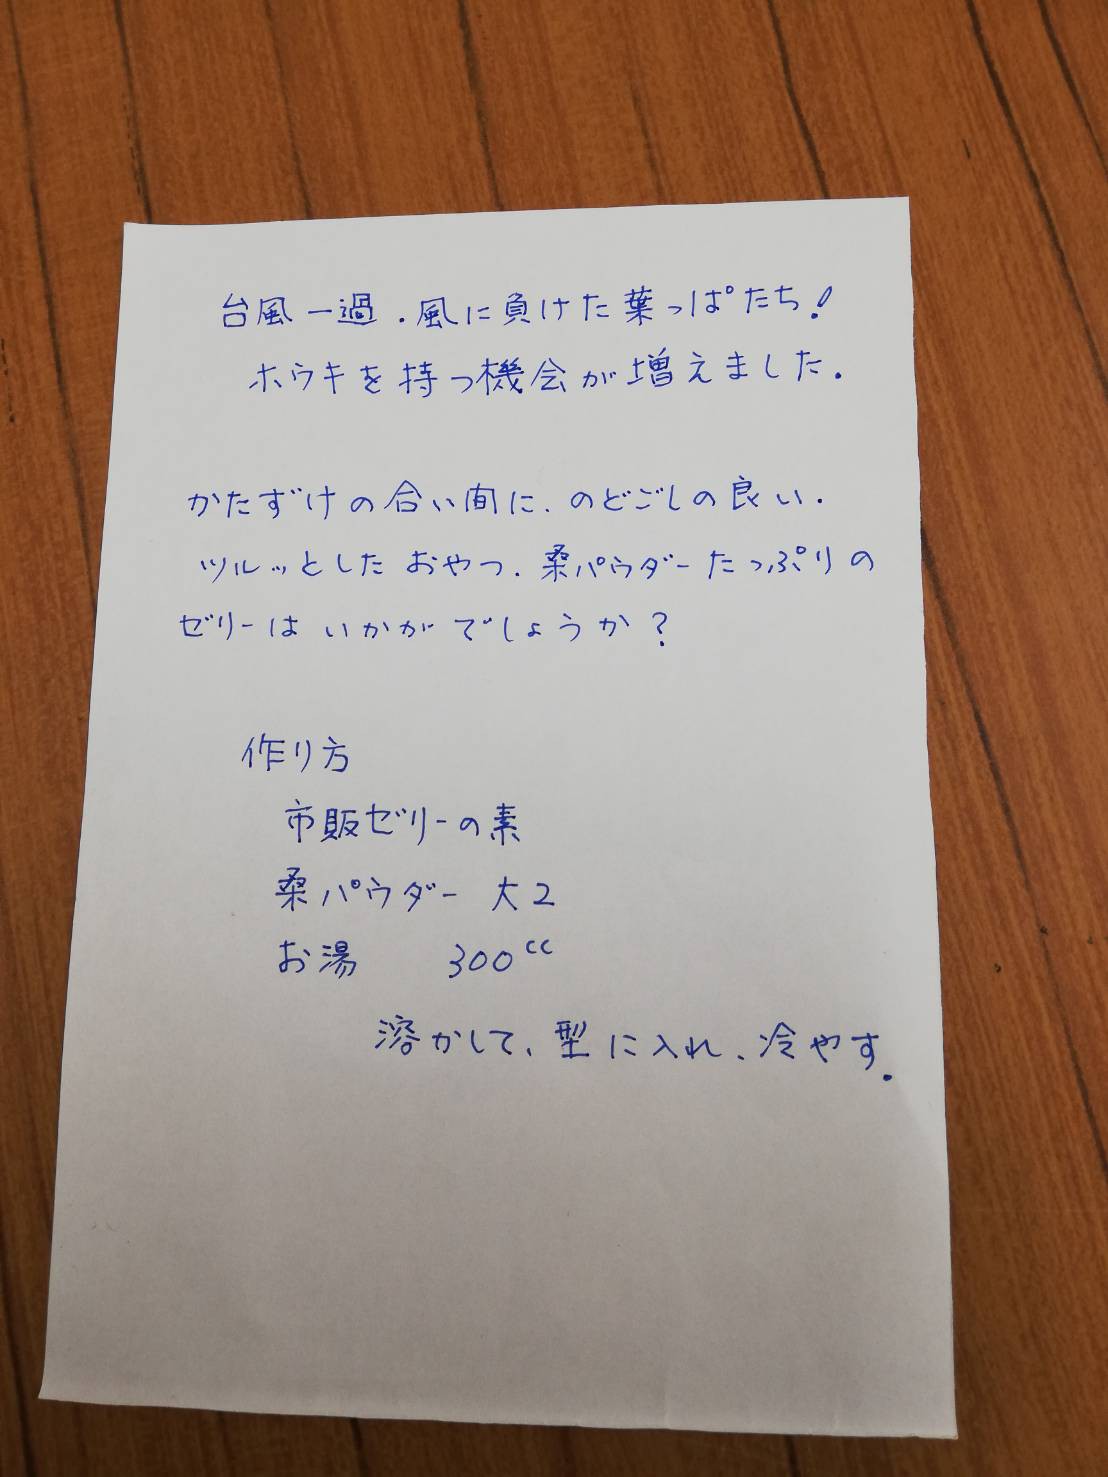 台風一過.風に負けた葉っぱたち!
ホウキを持つ機会が増えました.
かたずけの合い間に、のどごしの良い.
ツルッとしたおやつ.桑パウダーたっぷりの
ゼリーはいかがでしょうか?
作り方
市販ゼリーの素
桑パウダー 大2
お湯 300cc
溶かして、型に入れ、冷やす.